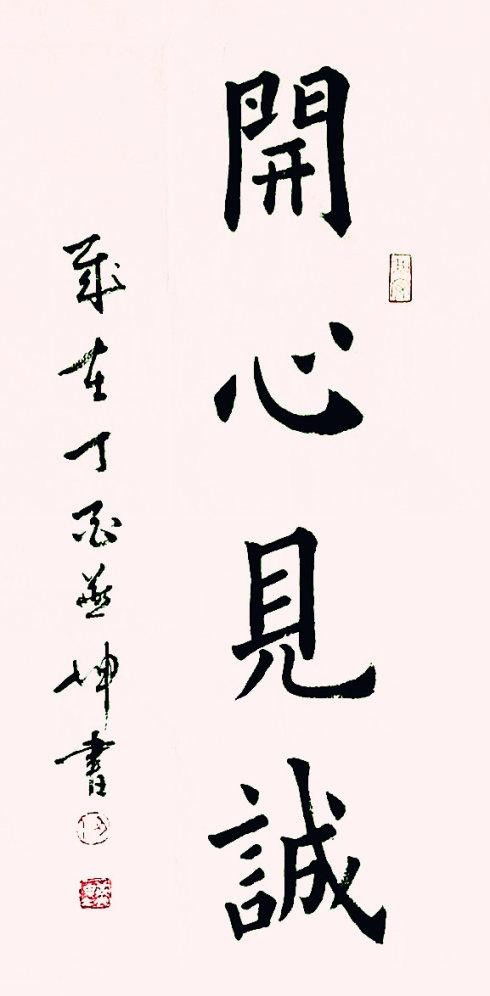 開心見誠
歲在丁酉益坤書